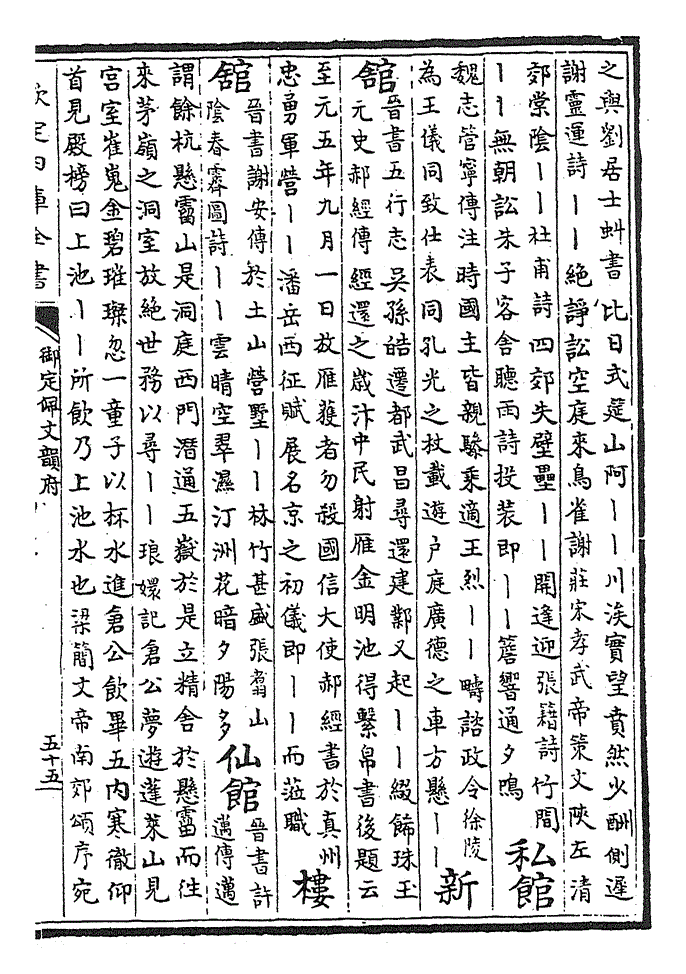 之與劉居士虯書比日式筵山阿丨丨川涘實望賁然少酬側遲
謝靈運詩丨丨絶諍訟空庭來鳥雀謝莊宋孝武帝策文陝左清
郊棠陰丨丨杜甫詩四郊失壁壘丨丨開逢迎張籍詩竹間
丨丨無朝訟朱子客舍聽雨詩投装即丨丨簷響通夕鳴
私館
魏志管寧傳注時國主皆親驂乘適王烈丨丨疇諮政令徐陵
為王儀同致仕表同孔光之杖載遊户庭廣德之車方懸丨丨
新
館
晉書五行志吳孫皓遷都武昌尋還建鄴又起丨丨綴飾珠玉
元史郝經傳經還之歲汴中民射雁金明池得繫帛書後題云
至元五年九月一日放雁獲者勿殺國信大使郝經書於真州
忠勇軍營丨丨潘岳西征賦展名京之初儀即丨丨而蒞職
樓
館
晉書謝安傳於土山營墅丨丨林竹甚盛張翥山
陰春霽圖詩丨丨雲晴空翠濕汀洲花暗夕陽多
仙館
晉書許
邁傳邁
謂餘杭懸霤山是洞庭西門潛通五嶽於是立精舍於懸霤而往
來茅嶺之洞室放絶世務以尋丨丨琅嬛記倉公夢遊蓬萊山見
宮室崔嵬金碧璀璨忽一童子以杯水進倉公飲畢五内寒徹仰
首見殿榜曰上池丨丨所飲乃上池水也梁簡文帝南郊頌序宛
欽定四庫全書
御定佩文韻府
五十五